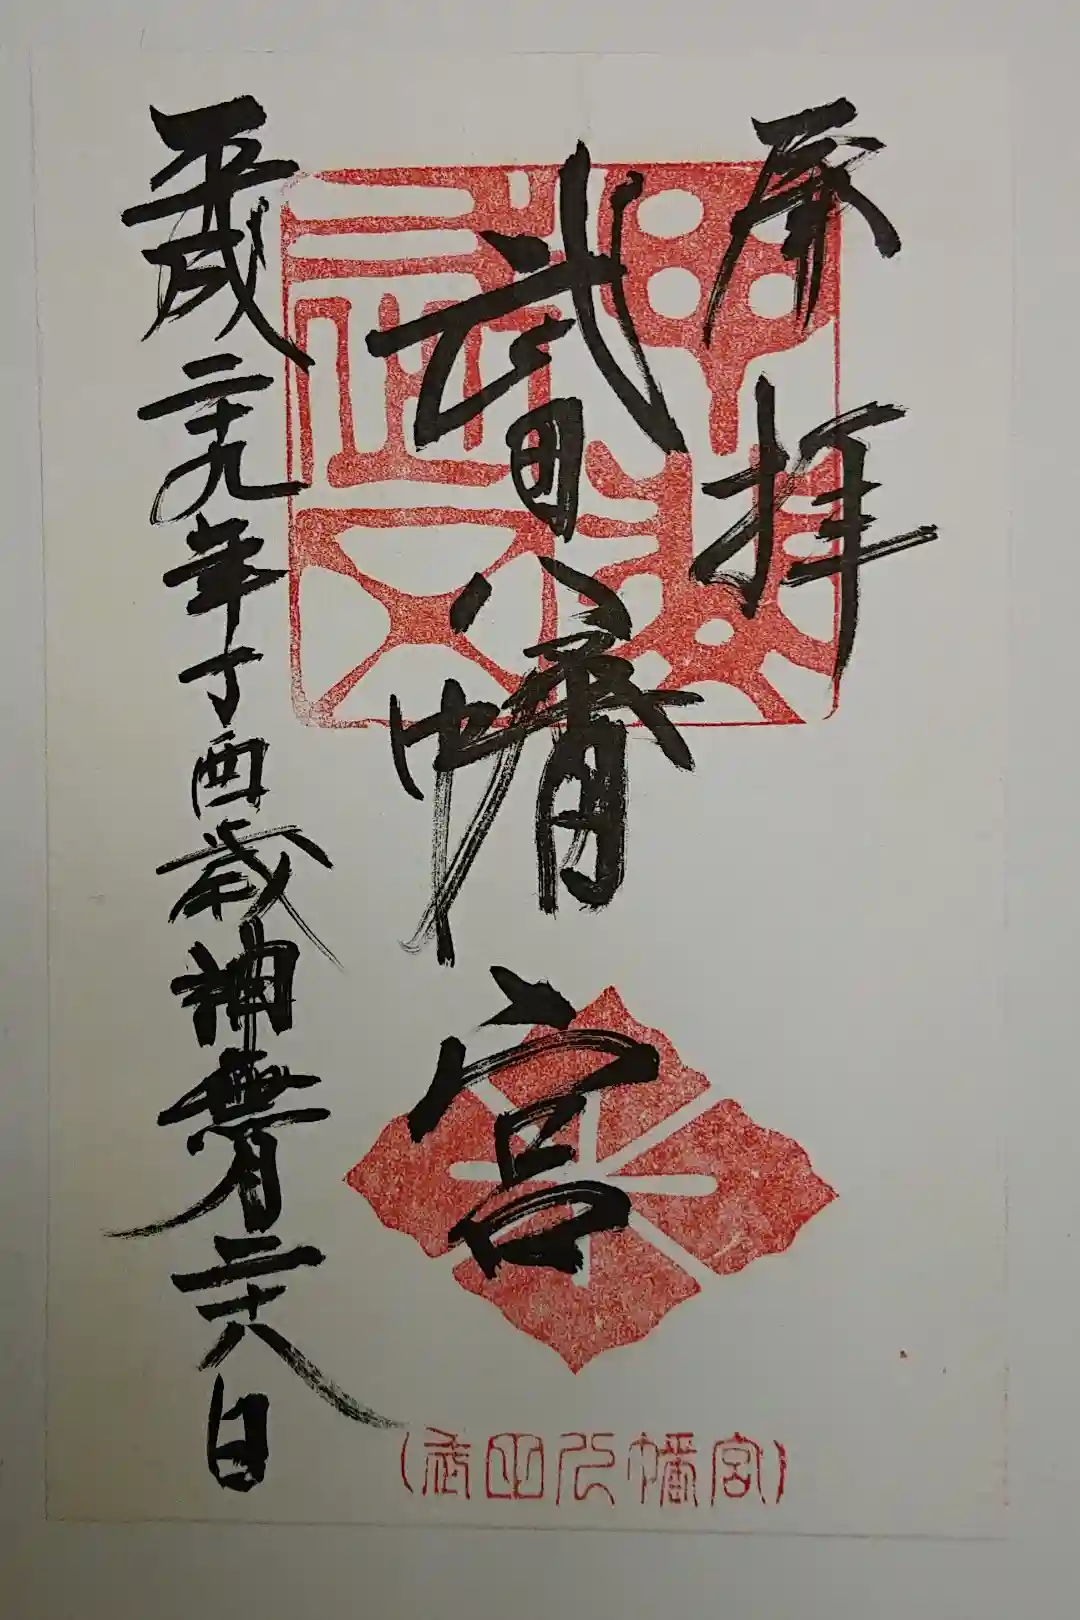 拝
武田八幡宮
平成二十九年丁酉歳神無月二十八日
武田八幡宮